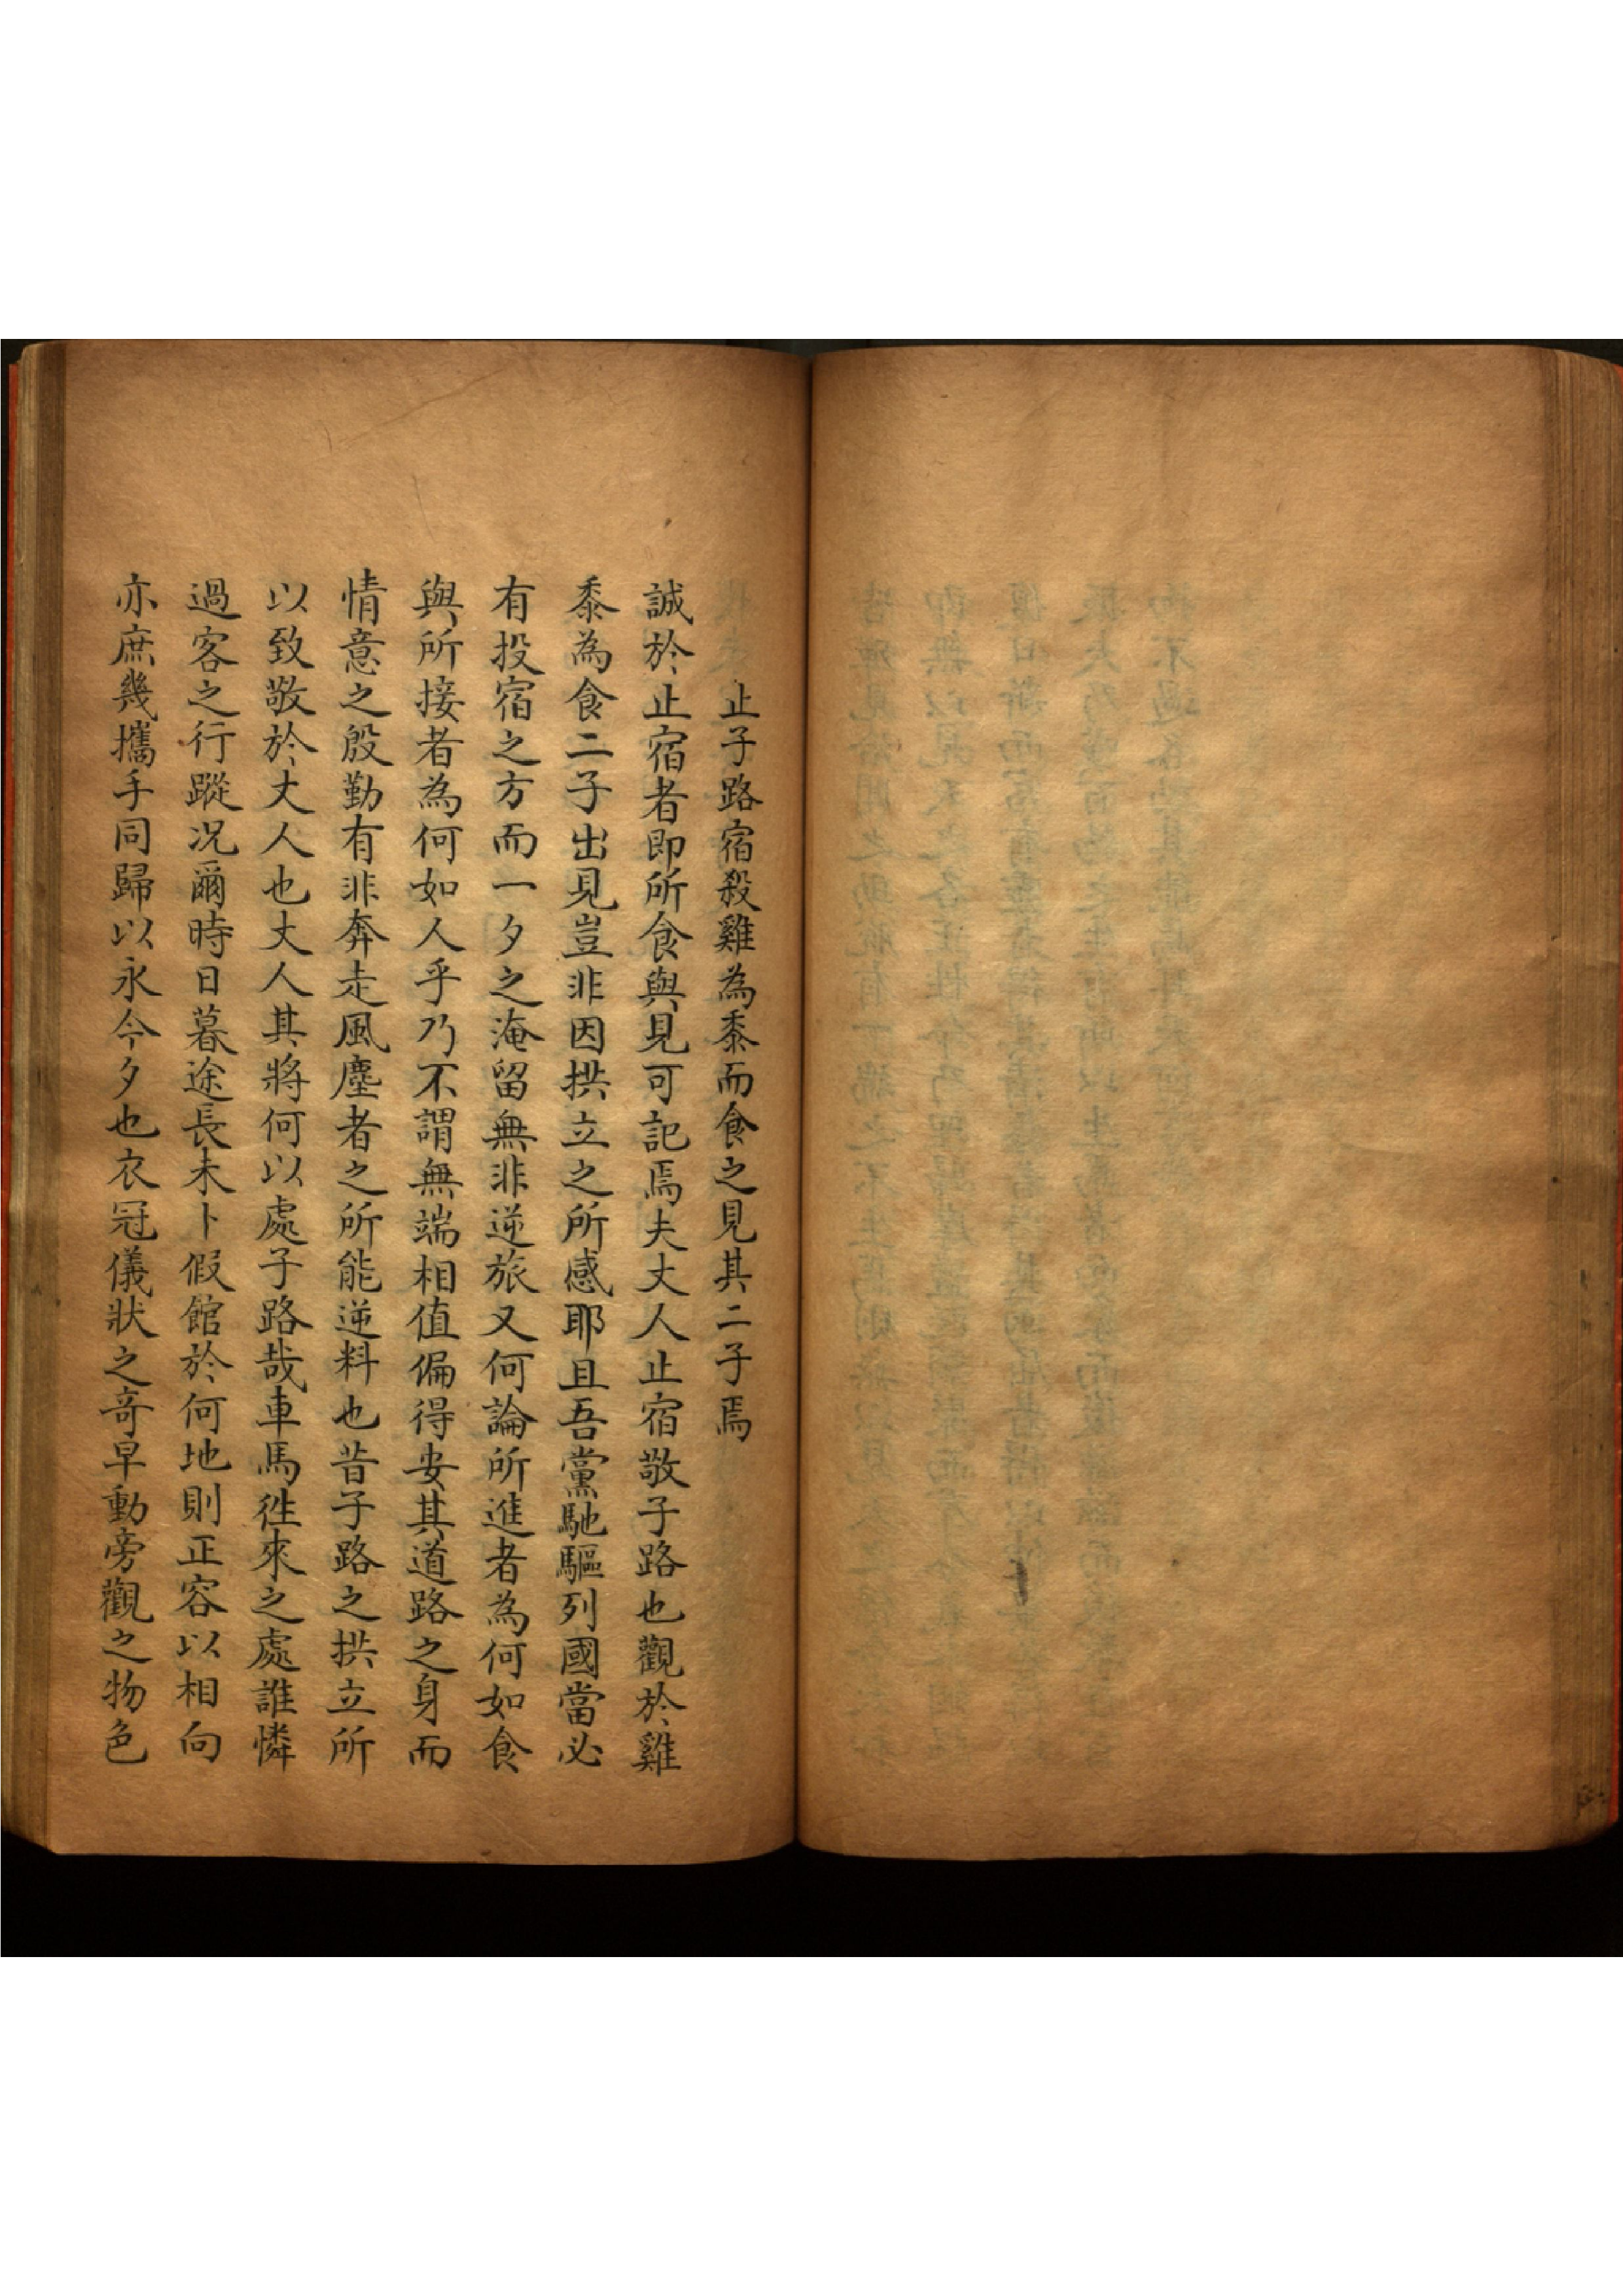 止子路宿殺雞為黍而食之見其二子焉
誠於止宿者即所食與見可記焉夫丈人止宿敬子路也觀於雞
黍為食二子出見豈非因拱立之所感耶且吾黨馳驅列國當必
有投宿之方而一夕之淹留無非逆旅又何論所進者為何如食
與所接者為何如人乎乃不謂無端相值偏得安其道路之身而
情意之殷勤有非奔走風塵者之所能逆料也昔子路之拱立所
以致敬於丈人也丈人其將何以處子路哉車馬徃來之處誰憐
過客之行蹤况爾時日暮途長未卜假館於何地則正容以相向
亦庶幾攜手同歸以永今夕也衣冠儀狀之奇早動旁觀之物色